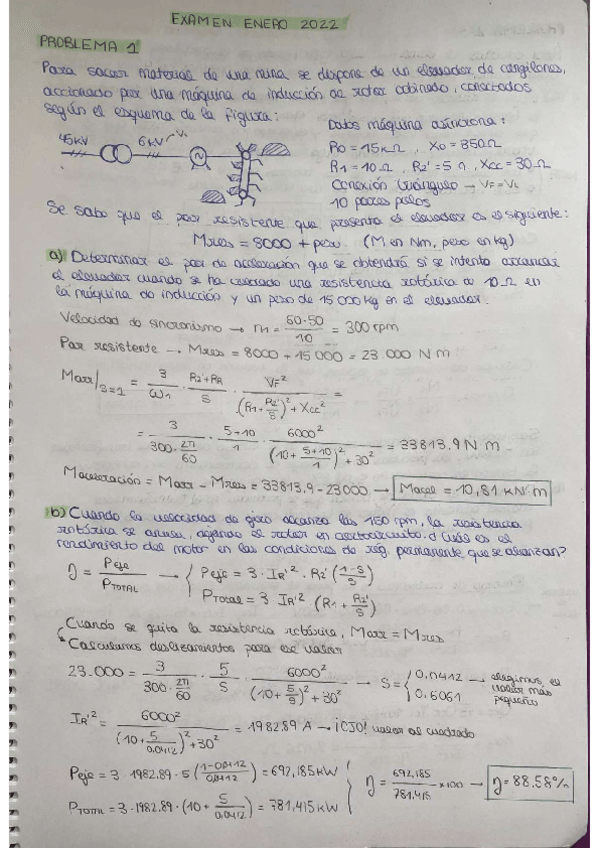 EXAMEN ENERO 2022
PROBLEMA 1
Para sacar material de una mina se dispone de un elevador de cangilones,
accionado por una máquina de inducción de rotor bobinado, conectados
según el esquema de la figura:
45KV 6KV
Datos máquina asíncrona:
R0 = 15KΩ , X0 = 350Ω
R1 = 10 Ω , R2' = 5 Ω , Xcc = 30 Ω
Conexión triángulo → VF = VL
10 pares polos
Se sabe que el par resistente que presenta el elevador es el siguiente:
Mres = 8000 + peso (M en Nm, peso en kg)
a) Determinar el par de aceleración que se obtendrá si se intenta arrancar
el elevador cuando se ha conectado una resistencia rotórica de 10 Ω en
la máquina de inducción y un peso de 15 000 kg en el elevador.
Velocidad de sincronismo → n = 60·50 / 10 = 300 rpm
Par resistente → Mres = 8000 + 15 000 = 23 000 N m
Marr/s=1 = 3/ω1 · (R2'+RR)/S · VF² / ((R1 + R2'/S)² + Xcc²) =
= 3 / (300·2π/60) · (5+10)/1 · 6000² / ((10 + (5+10)/1)² + 30²) = 33813,9 N m
Maceleración = Marr - Mres = 33813,9 - 23000 → Macel = 10,81 kN·m
b) Cuando la velocidad de giro alcanza las 180 rpm, la resistencia
rotórica se anula, dejando el rotor en cortocircuito. ¿Cuál es el
rendimiento del motor en las condiciones de rég. permanente que se alcanzan?
η = Peje / PTOTAL → { Peje = 3 · IR'² · R2' ((1-S)/S)
PTotal = 3 · IR'² (R1 + R2'/S)
Cuando se quita la resistencia rotórica, Marr = Mres
Calculamos deslizamientos para ese valor
23.000 = 3 / (300·2π/60) · 5/S · 6000² / ((10 + 5/S)² + 30²) → S = { 0,0412 → elegimos el
0,6061 valor más
pequeño
IR'² = 6000² / ((10 + 5/0,0412)² + 30²) = 1982.89 A → ¡OJO! valor al cuadrado
Peje = 3 · 1982.89 · 5 ((1-0,0412)/0,0412) = 692,185 kW
η = 692,185 / 781,415 × 100 → η = 88.58%
PTOTAL = 3 · 1982.89 · (10 + 5/0,0412) = 781,415 kW